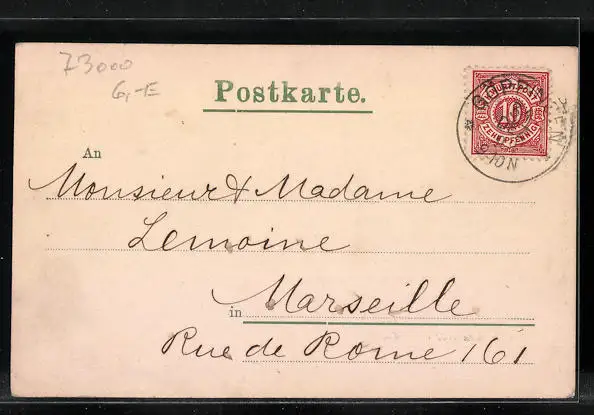 73000
6,-E
Postkarte.
10
ZEHN PFENNIG
An
Monsieur & Madame
Lemoine
in Marseille
Rue de Rome 161